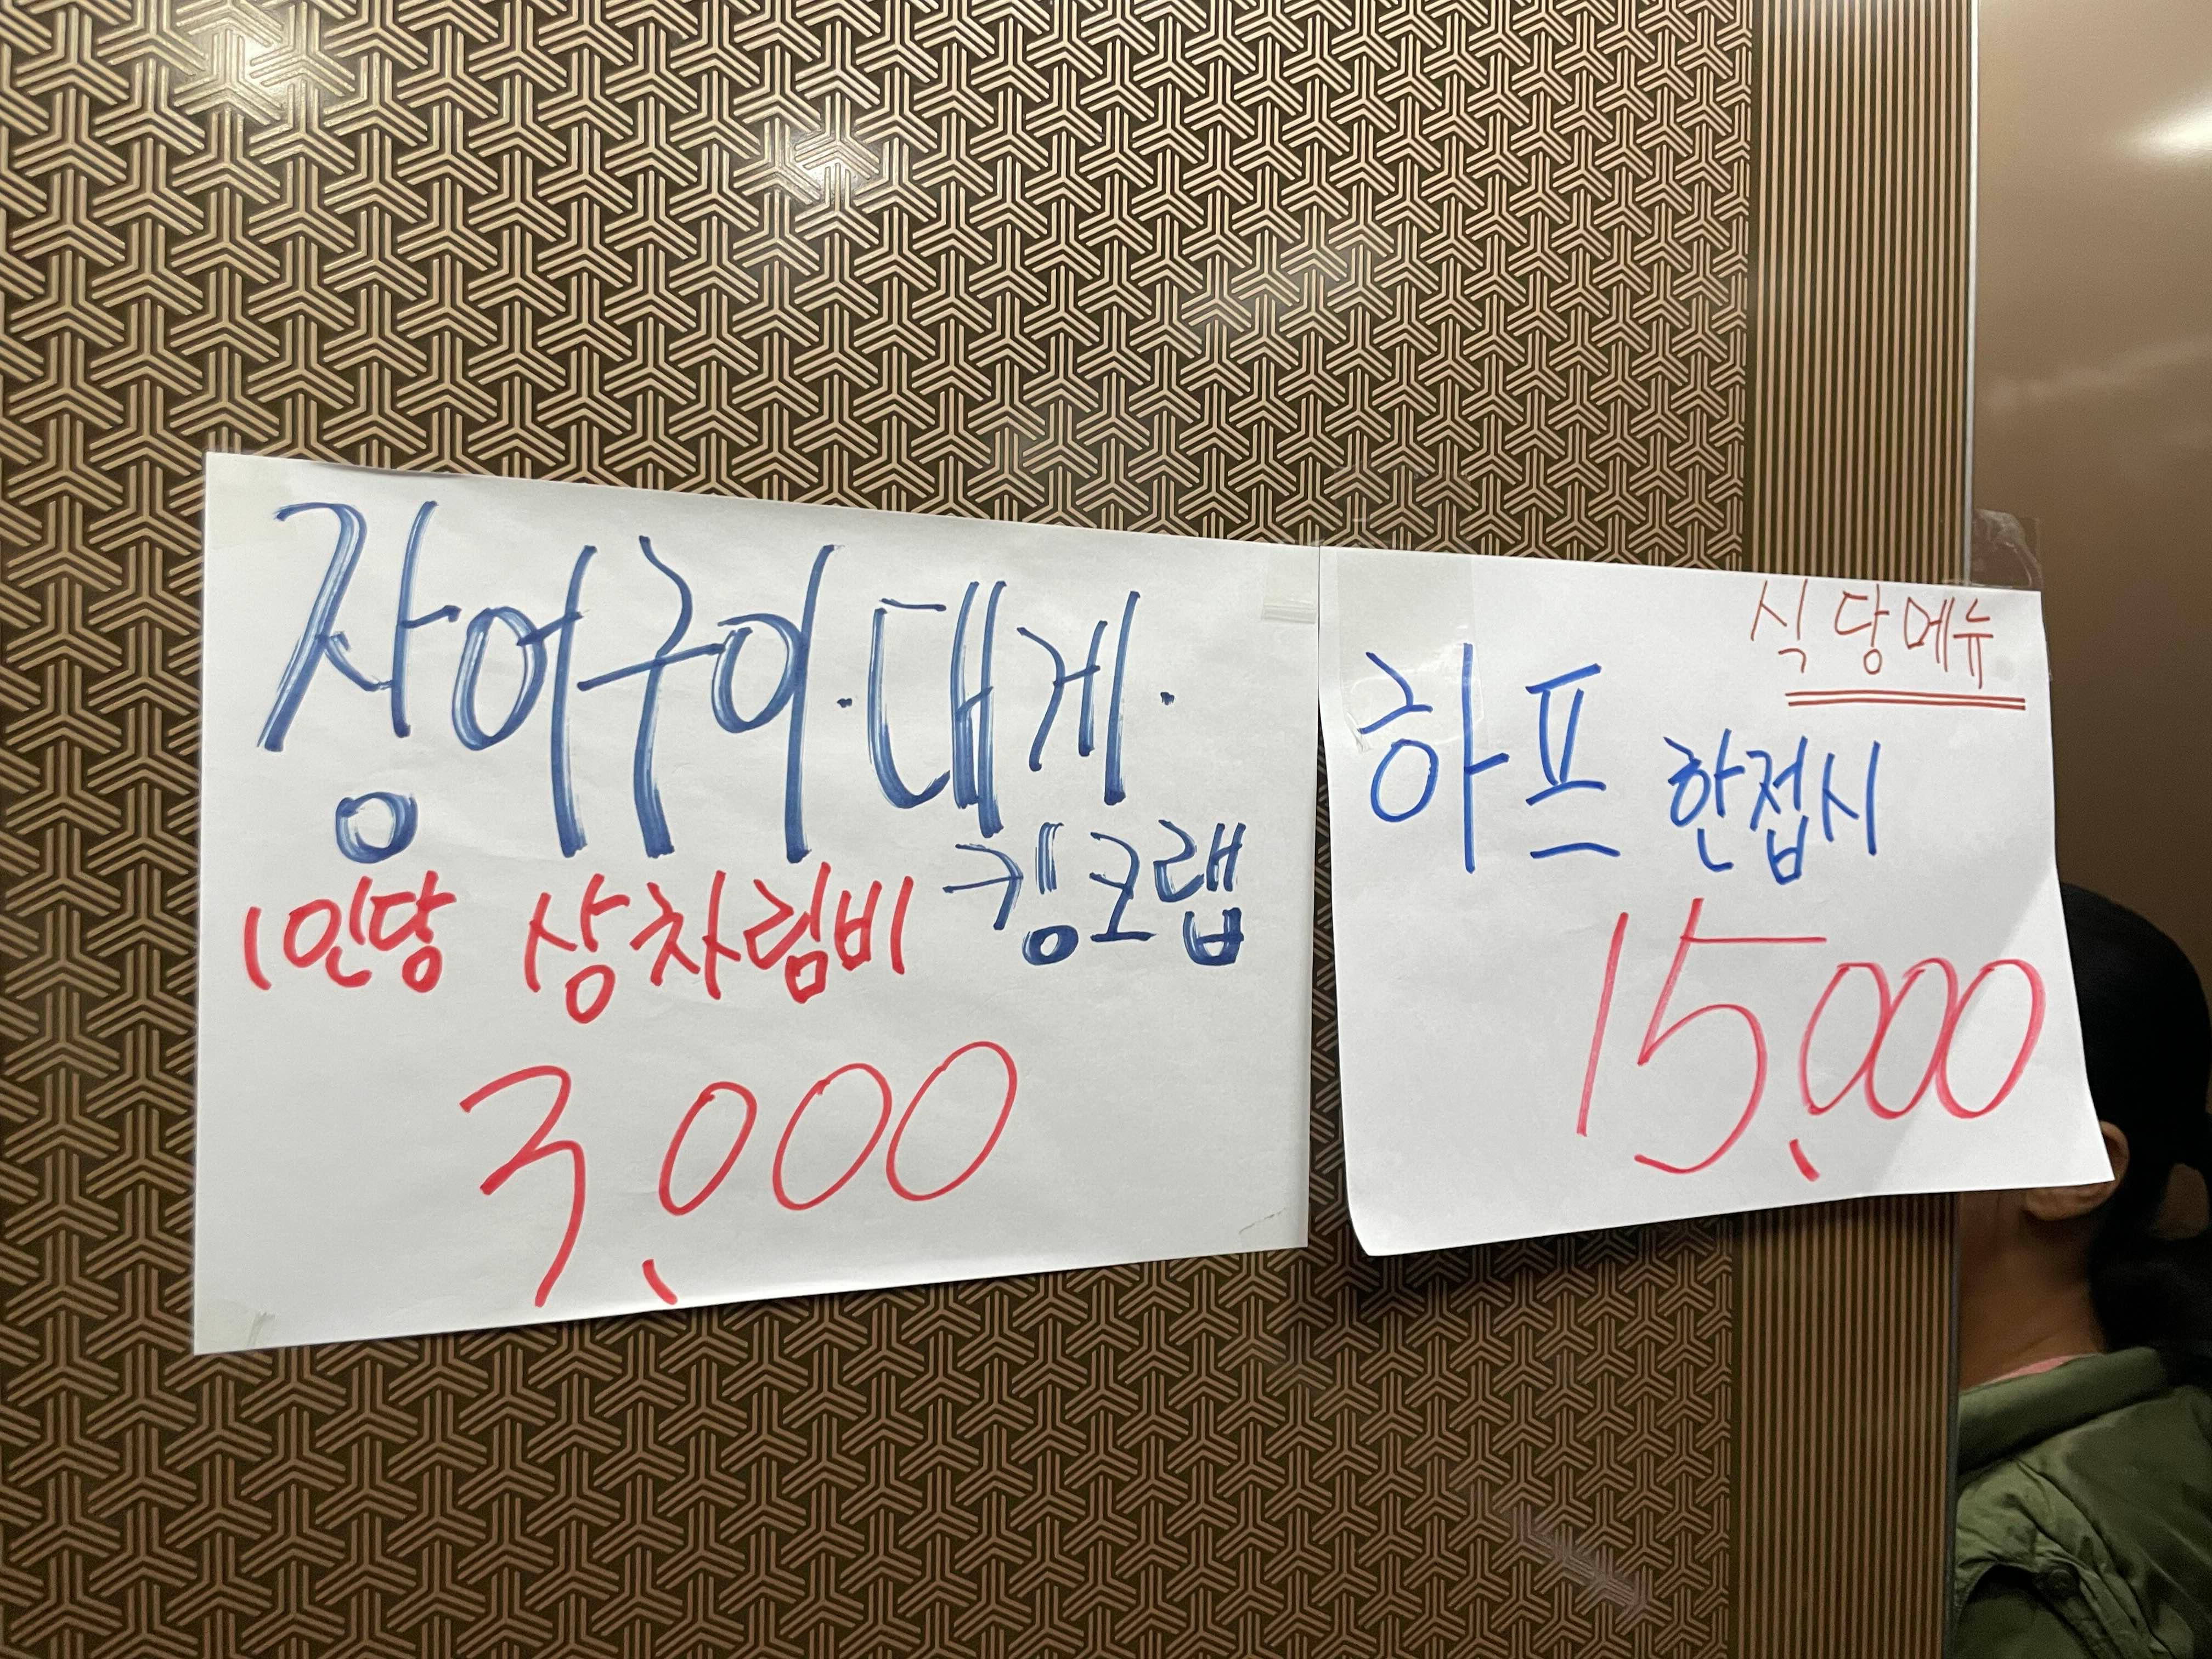 장어구이·대게·
킹크랩
1인당 상차림비
3,000
식당메뉴
하프 한접시
15,000